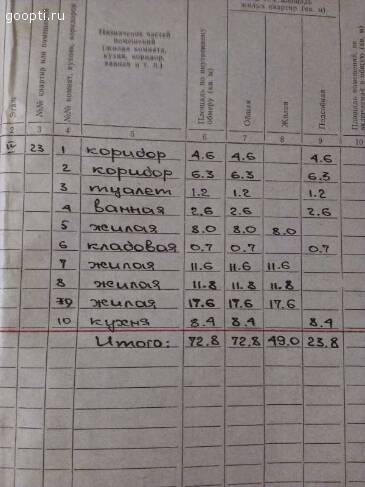 goopti.ru
жилых квартир (кв. м)
№№ квартир или помещений
№№ комнат, кухонь, коридоров
Назначение частей помещений (жилая комната, кухня, коридор, ванная и т. п.)
Площадь по внутреннему обмеру (кв. м)
Общая
Жилая
Подсобная
2 3 4 5 6 7 8 9 10
23 1 коридор 4.6 4.6 4.6
2 коридор 6.3 6.3 6.3
3 туалет 1.2 1.2 1.2
4 ванная 2.6 2.6 2.6
5 жилая 8.0 8.0 8.0
6 кладовая 0.7 0.7 0.7
7 жилая 11.6 11.6 11.6
8 жилая 11.8 11.8 11.8
9 жилая 17.6 17.6 17.6
10 кухня 8.4 8.4 8.4
Итого: 72.8 72.8 49.0 23.8